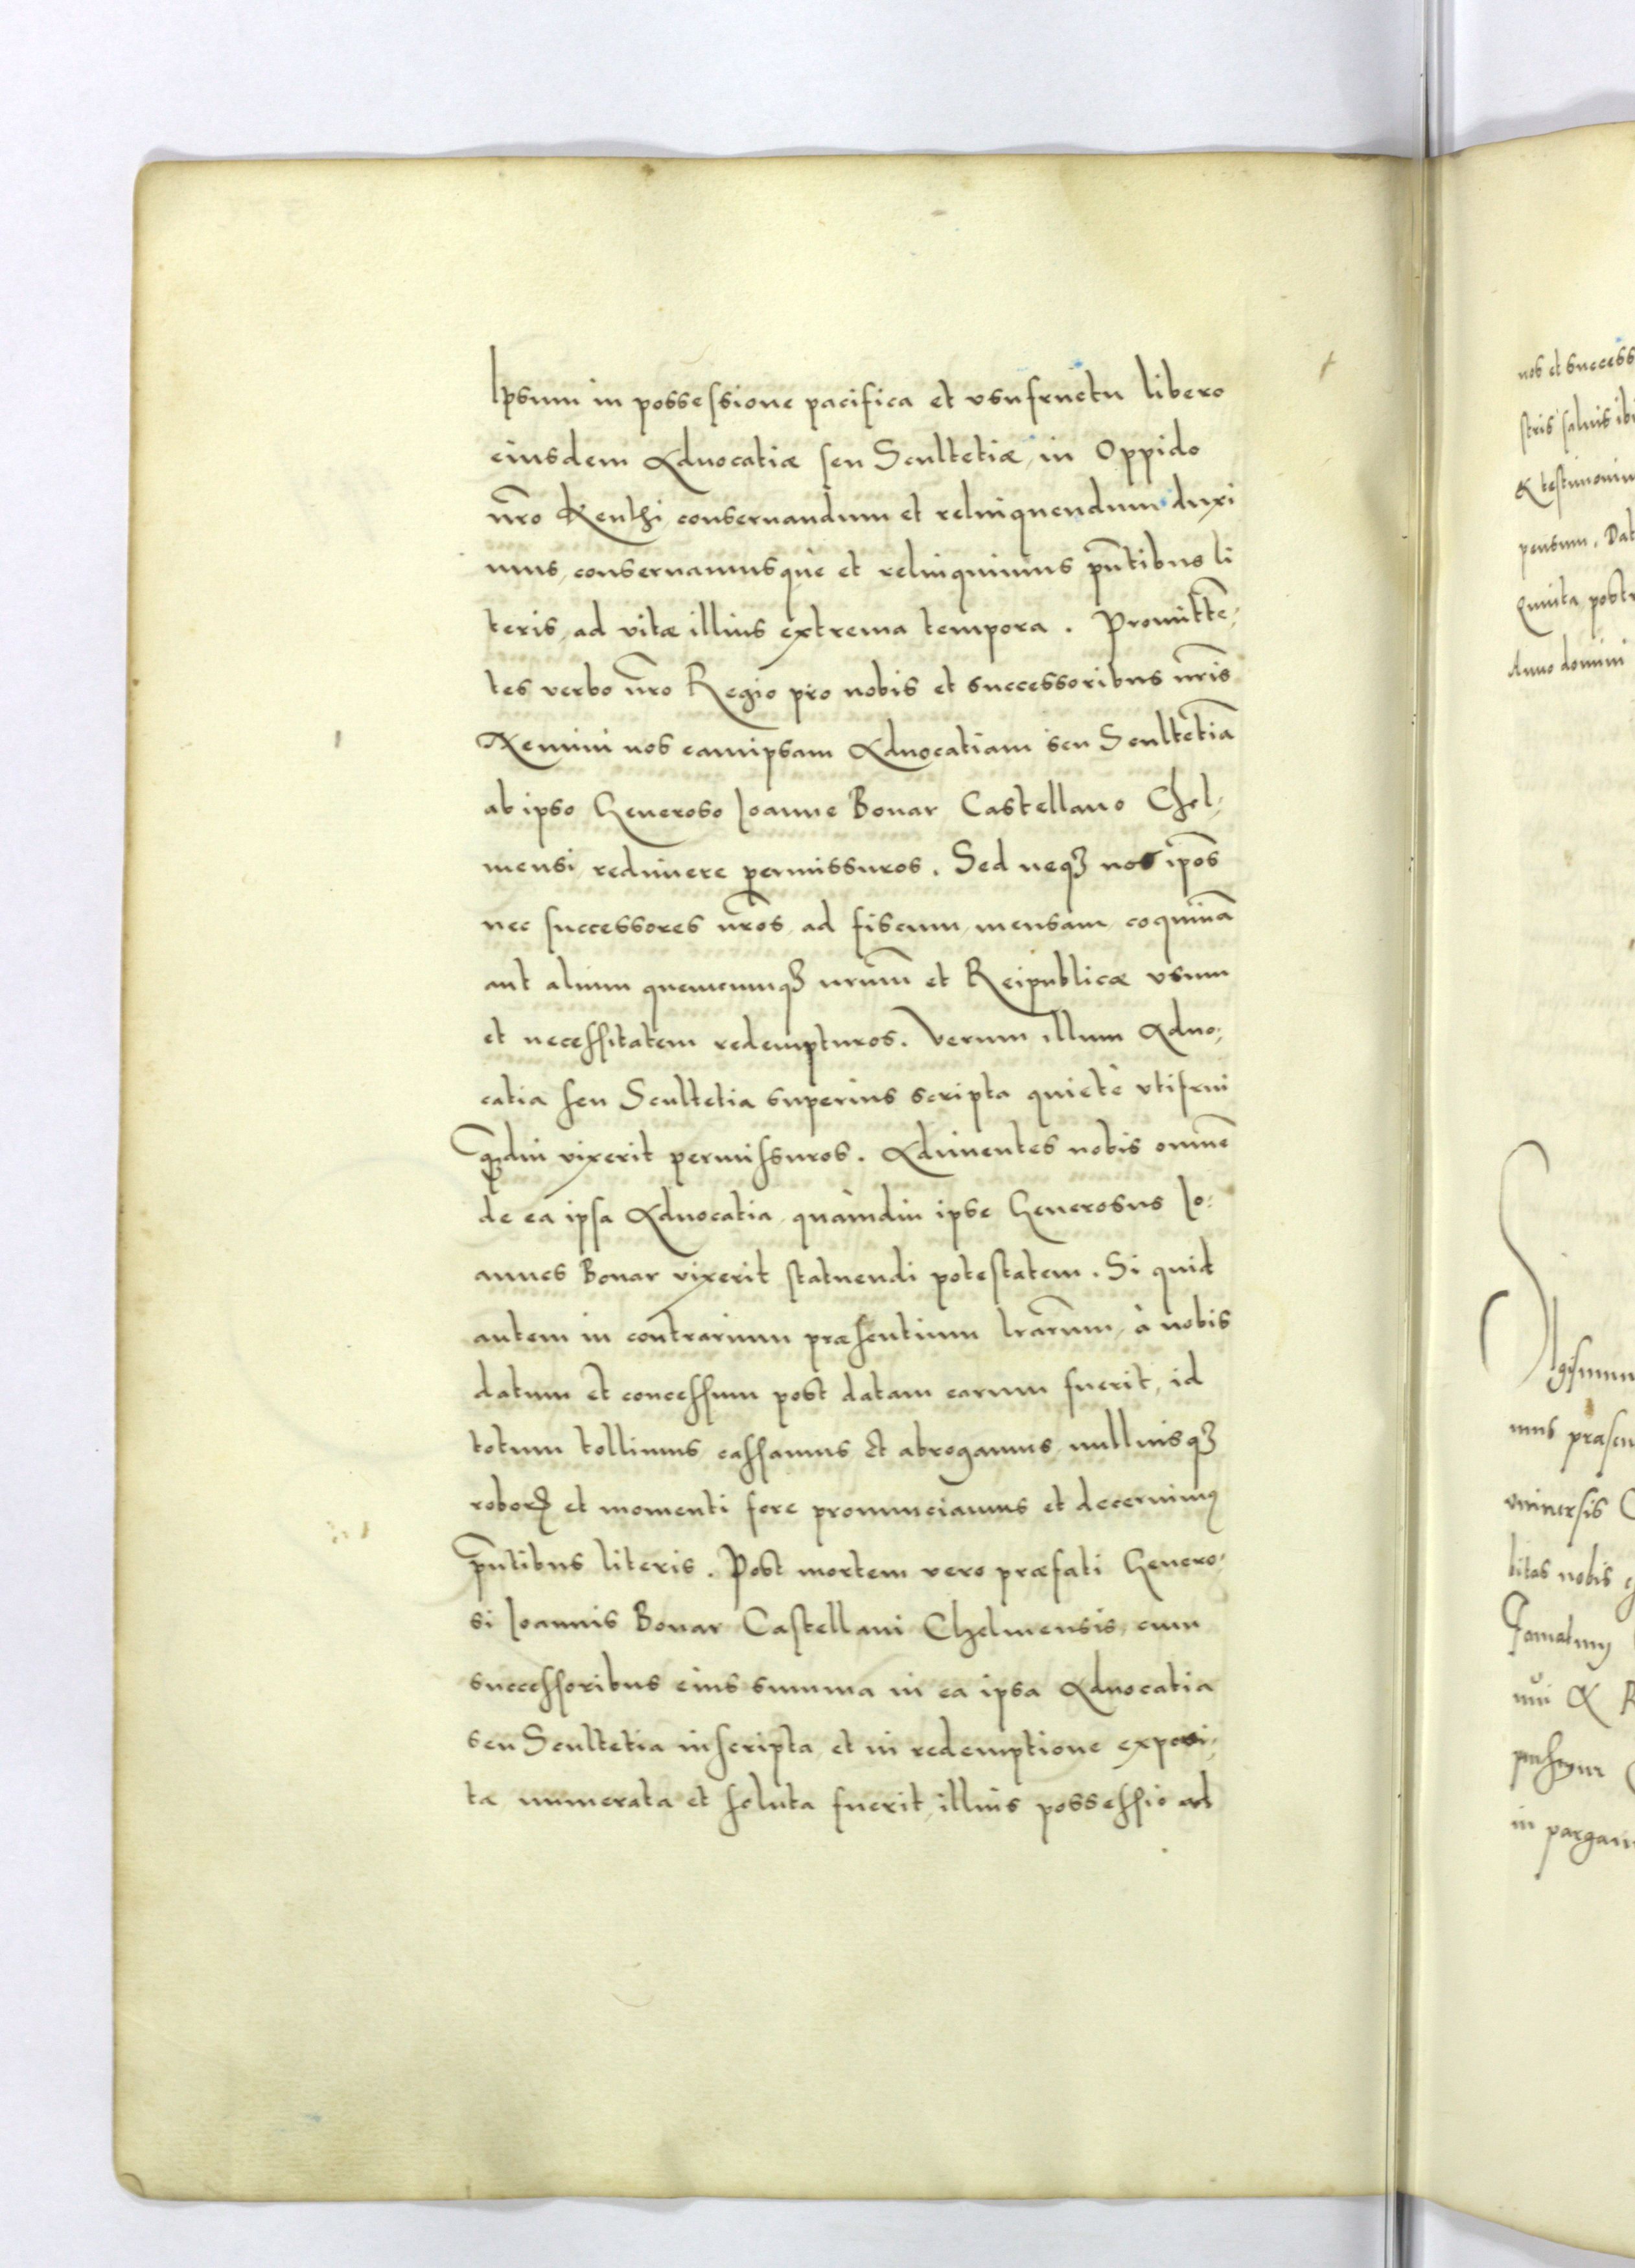 Ipsum in possessione pacifica et vsufructu libero
eiusdem Aduocatiæ seu Scultetiæ, in Oppido
nr̄o Kenthi conseruandum et relinquendum duxi
mus, conseruamusque et relinquimus pn̄tibus li
teris, ad vitæ illius extrema tempora. Promittē,
tes verbo nr̄o Regio pro nobis et successoribus nr̄is
Nemini nos eamipsam Aduocatiam seu Scultetiā
ab ipso Generoso Ioanne Bonar Castellano Chel,
mensi, redimere permissuros. Sed neqꝫ nos ip̄os
nec successores nr̄os, ad fiscum, mensam, coquinā
aut alium quemcumqꝫ nrum̄ et Reipublicæ vsum
et necessitatem redempturos. Verum illum Aduo,
catia seu Scultetia superius scripta quietè vtifrui
qꝫdiu vixerit permissuros. Adimentes nobis omnē
de ea ipsa Aduocatia, quàmdiu ipse Generosus Io,
annes Bonar vixerit statuendi potestatem. Si quid
autem in contrarium præsentium lrarum̄, à nobis
datum et concessum post datam earum fuerit, id
totum tollimus, cassamus et abrogamus, nulliusqꝫ
roboris et momenti fore pronunciamus et decernimꝰ
pn̄tibus literis. Post mortem vero præfati Genero,
si Ioannis Bonar Castellani Chelmensis, cum
successoribus eius summa in ea ipsa Aduocatia
seu Scultetia inscripta, et in redemptione exposi,
ta numerata et soluta fuerit, illius possessio ad
nos et success
stris saluis ibi
& testimonium
pensum. Dat
Quinta post
Anno domini
mus præsen
vniuersis
bitas nobis
in pargam